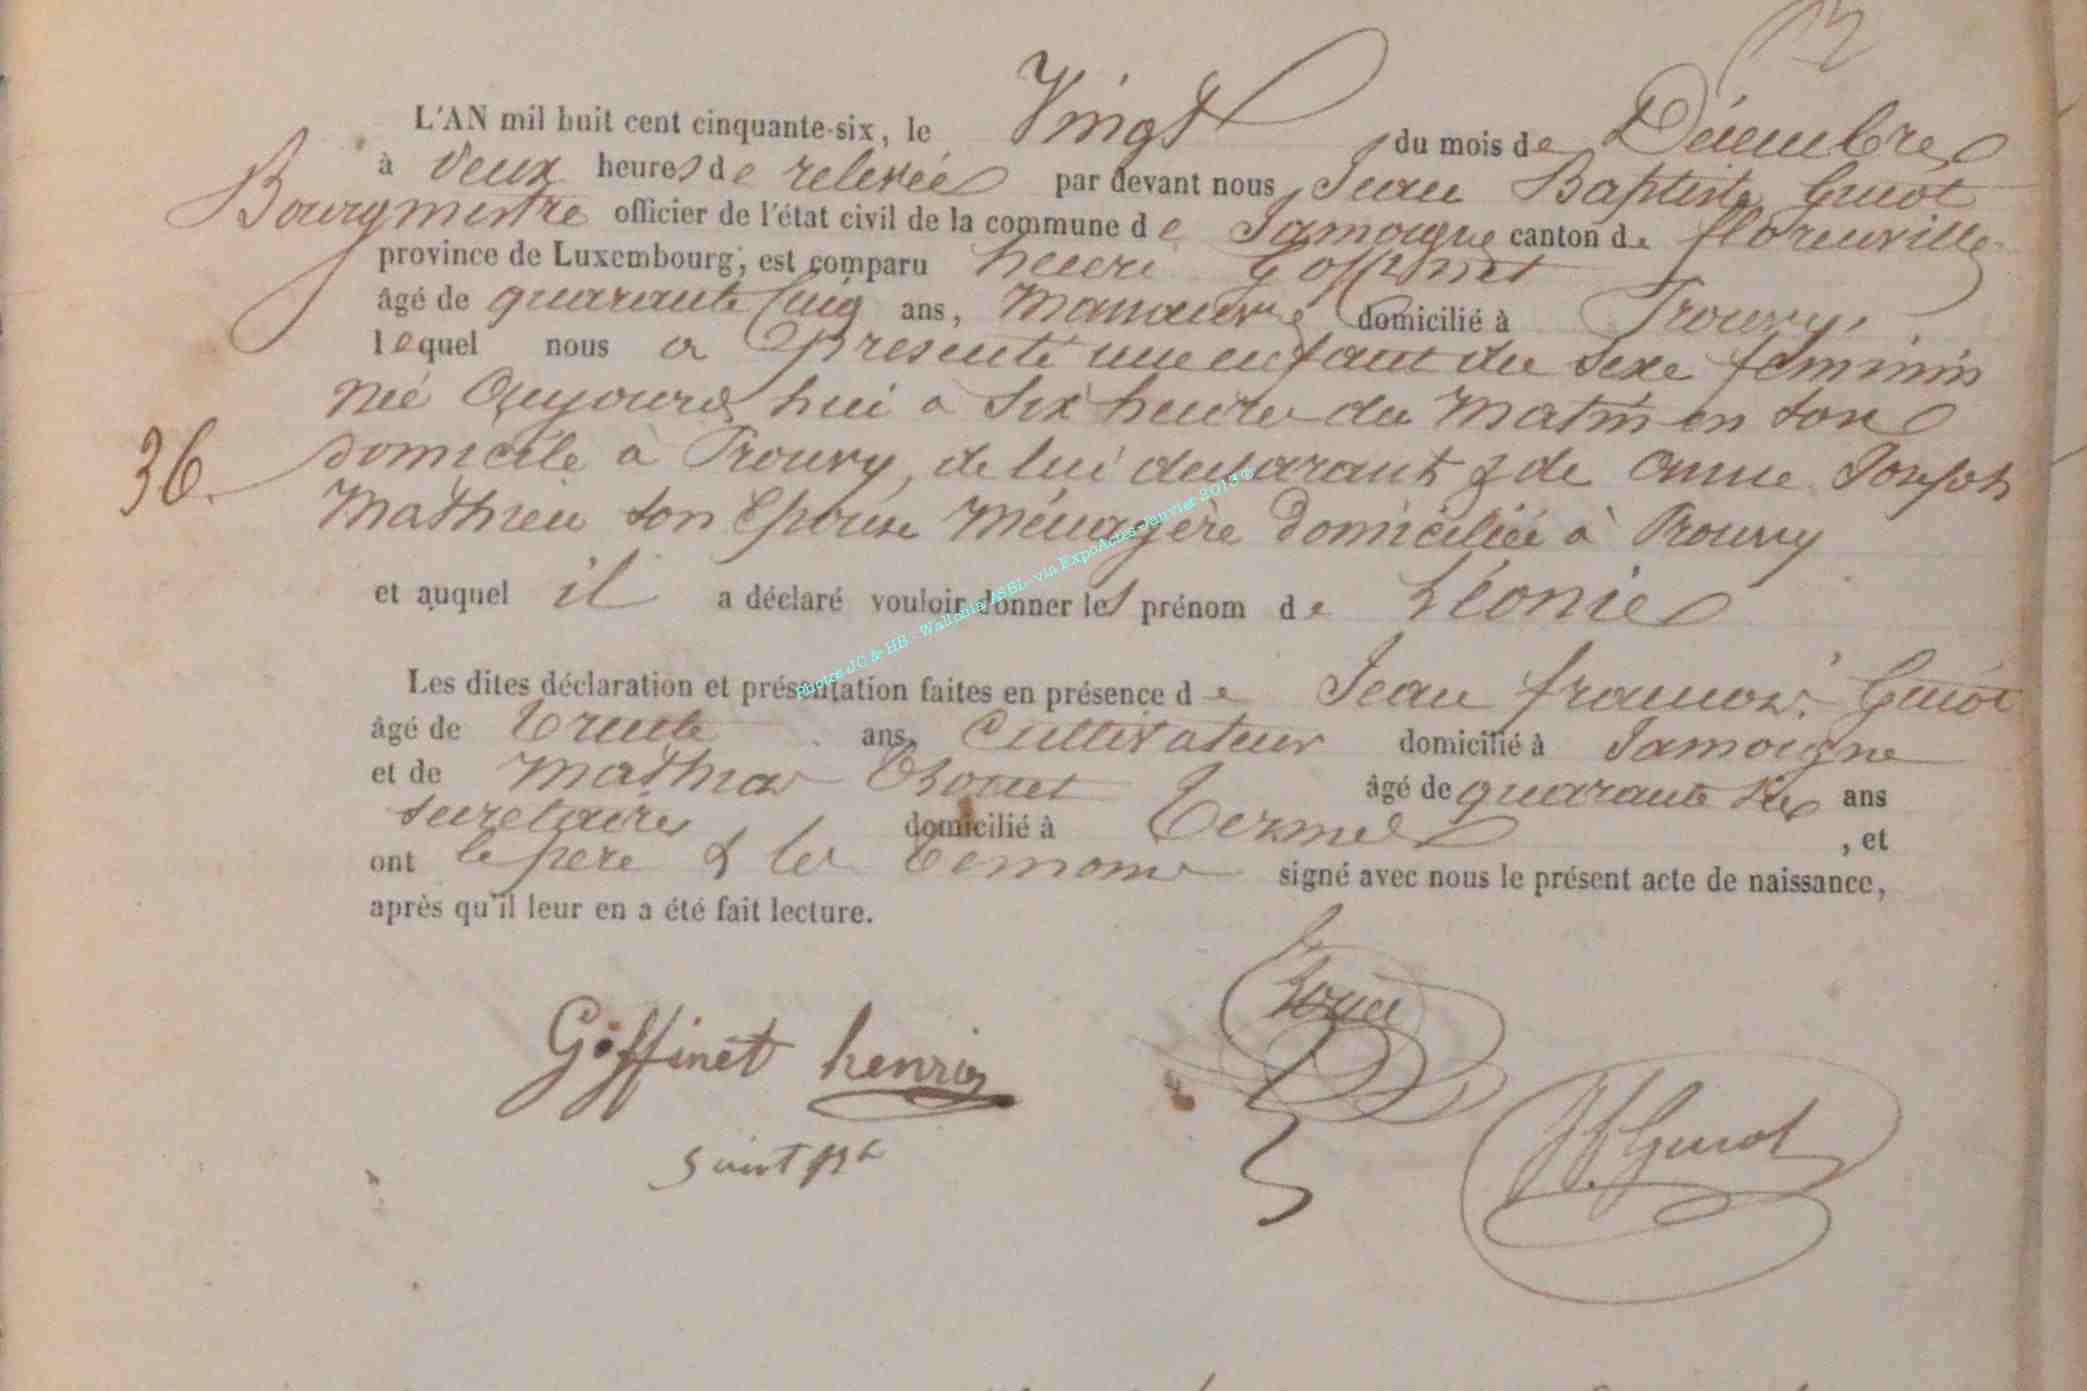 L'AN mil huit cent cinquante-six, le Vingt du mois de Décembre
à deux heures de relevée par devant nous Jean Baptiste Guiot
Bourgmestre officier de l'état civil de la commune de Jamoigne canton de florenville
province de Luxembourg, est comparu henri Goffinet
âgé de quarante cinq ans, Manœuvre domicilié à Prouvy,
lequel nous a présenté une enfant du sexe féminin
née Aujourd'hui à six heures du Matin en son
36. domicile à Prouvy, de lui déclarant & de Anne Joseph
Mathieu son Epouse Ménagère domiciliée à Prouvy
et auquel il a déclaré vouloir donner les prénom de Léonie
Les dites déclaration et présentation faites en présence de Jean françois Guiot
âgé de trente ans, Cultivateur domicilié à Jamoigne
et de Mathias âgé de quarante six ans
secrétaire domicilié à Termes, et
ont le père & les témoins signé avec nous le présent acte de naissance,
après qu'il leur en a été fait lecture.
Goffinet henri
JfGuiot
Photos JC & HB - Wallonia ASBL - via ExpoActes-Janvier 2013 ©